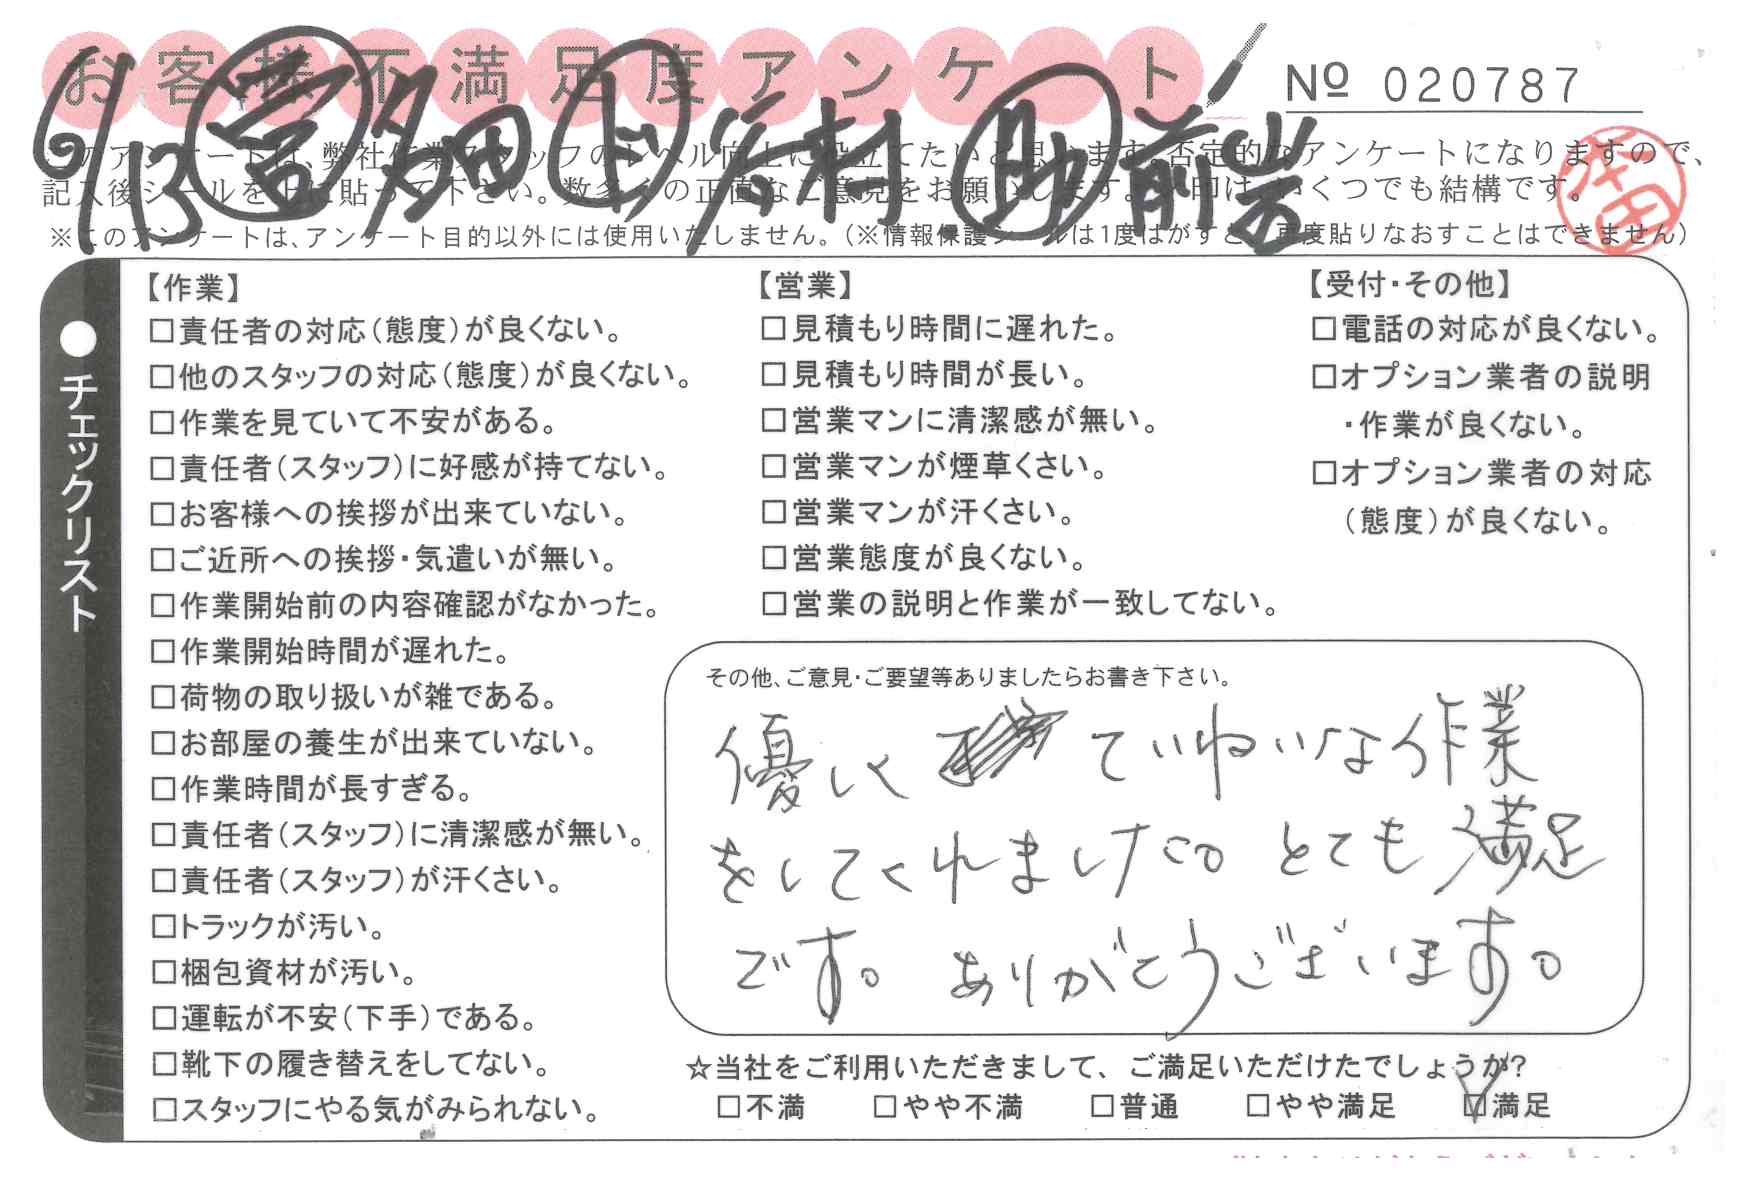 お客様不満足度アンケート
№ 020787
9/13 営 多田 ド 谷村 助 前岩
このアンケートは、弊社作業スタッフのレベル向上に役立てたいと思います。否定的なアンケートになりますので、
記入後シールを上に貼って下さい。数多くの正直なご意見をお願いします。レ印は、いくつでも結構です。
※このアンケートは、アンケート目的以外には使用いたしません。（※情報保護シールは1度はがすと、再度貼りなおすことはできません）
●チェックリスト
【作業】
□責任者の対応（態度）が良くない。
□他のスタッフの対応（態度）が良くない。
□作業を見ていて不安がある。
□責任者（スタッフ）に好感が持てない。
□お客様への挨拶が出来ていない。
□ご近所への挨拶・気遣いが無い。
□作業開始前の内容確認がなかった。
□作業開始時間が遅れた。
□荷物の取り扱いが雑である。
□お部屋の養生が出来ていない。
□作業時間が長すぎる。
□責任者（スタッフ）に清潔感が無い。
□責任者（スタッフ）が汗くさい。
□トラックが汚い。
□梱包資材が汚い。
□運転が不安（下手）である。
□靴下の履き替えをしてない。
□スタッフにやる気がみられない。
【営業】
□見積もり時間に遅れた。
□見積もり時間が長い。
□営業マンに清潔感が無い。
□営業マンが煙草くさい。
□営業マンが汗くさい。
□営業態度が良くない。
□営業の説明と作業が一致してない。
【受付・その他】
□電話の対応が良くない。
□オプション業者の説明
・作業が良くない。
□オプション業者の対応
（態度）が良くない。
その他、ご意見・ご要望等ありましたらお書き下さい。
優しく ていねいな作業
をしてくれました。とても満足
です。ありがとうございます。
☆当社をご利用いただきまして、ご満足いただけたでしょうか?
□不満 □やや不満 □普通 □やや満足 ☑満足